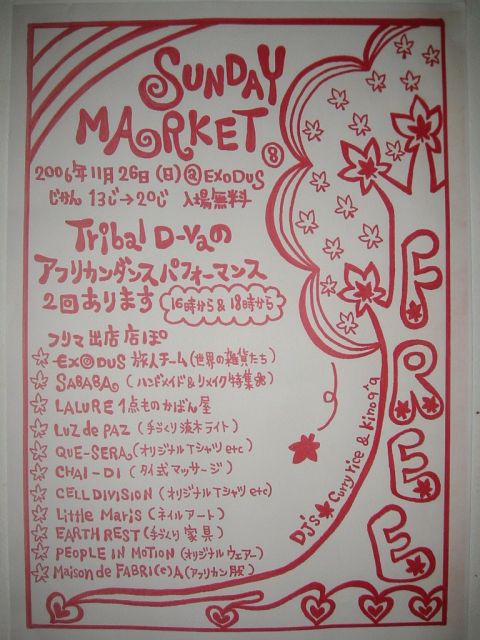 SUNDAY
MARKET ⑧
2006年11月26日(日)@EXODUS
じかん 13じ→20じ 入場無料
Tribal D-vaの
アフリカンダンスパフォーマンス
2回あります 16時から&18時から
フリマ出店店ぽ
EXODUS 旅人チーム(世界の雑貨たち)
SABABA (ハンドメイド&リメイク特集)
LALURE 1点ものかばん屋
LUZ de PAZ (手づくり流木ライト)
QUE-SERA (オリジナルTシャツetc)
CHAI-DI (タイ式マッサージ)
CELL DIVISION (オリジナルTシャツetc)
Little Maris (ネイルアート)
EARTH REST (手づくり家具)
PEOPLE IN MOTION (オリジナルウェアー)
Maison de FABRI(e)A (アフリカン服)
DJ's Curry rice & kinoq'q
FREE